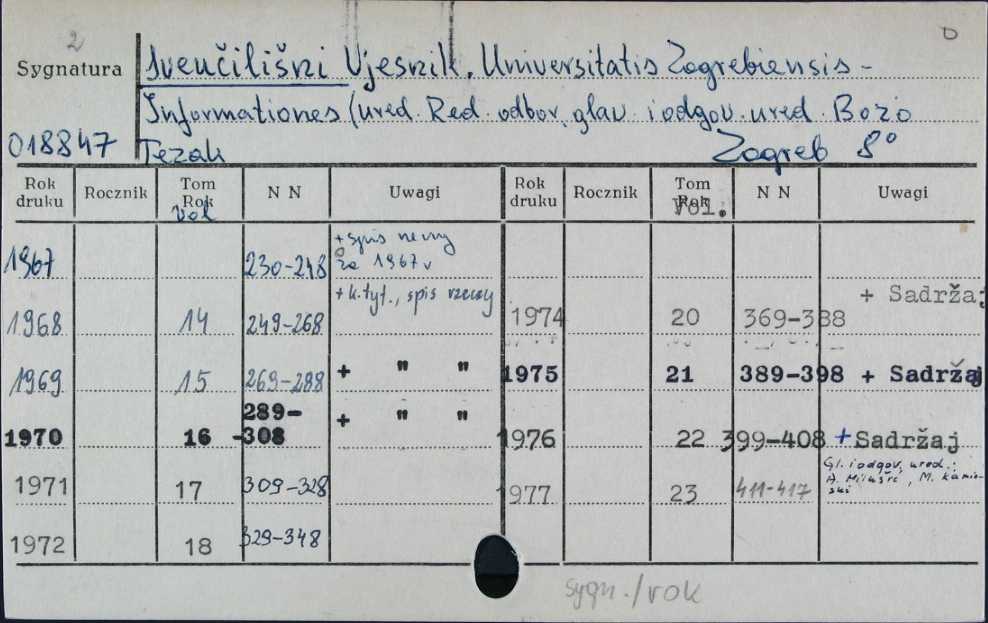 2 D
Sygnatura Sveučilišni Vjesnik. Universitatis Zagrebiensis -
Informationes (ured. Red. odbor, glav. i odgov. ured. Božo
018847 Težak Zagreb 8°
Rok druku Rocznik Tom Rok vol N N Uwagi Rok druku Rocznik Tom Rok Vol. N N Uwagi
1967 230-248 + spis rzeczy za 1967 r
1968 14 249-268 + k. tyt., spis rzeczy 1974 20 369-388 + Sadržaj
1969 15 269-288 + " " 1975 21 389-398 + Sadržaj
1970 16 289-308 + " " 1976 22 399-408 + Sadržaj
1971 17 309-328 1977 23 411-417 Gl. i odgov. ured.: A. , M.
1972 18 329-348
sygn./rok